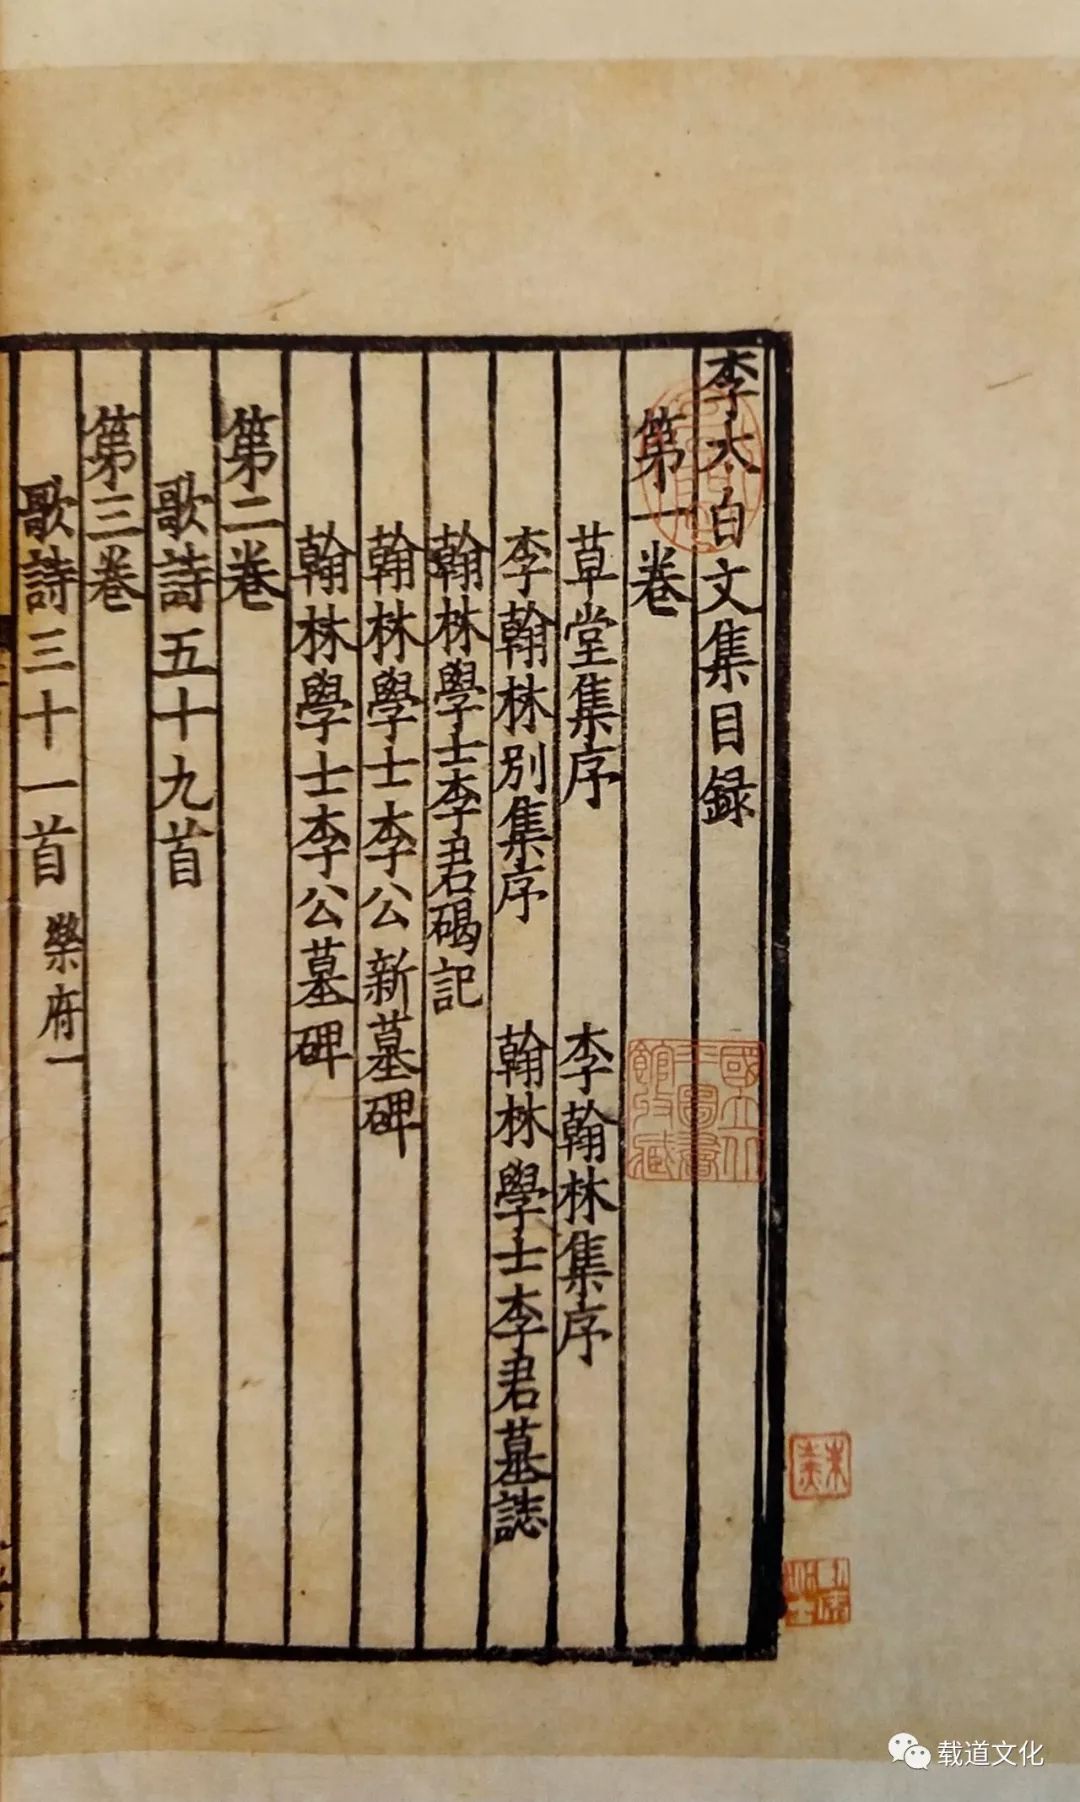 李太白文集目録
第一卷
草堂集序 李翰林集序
李翰林别集序 翰林學士李君墓誌
翰林學士李君碣記
翰林學士李公新墓碑
翰林學士李公墓碑
第二卷
歌詩五十九首
第三卷
歌詩三十一首 樂府一
國立北
平圖書
館收藏
载道文化